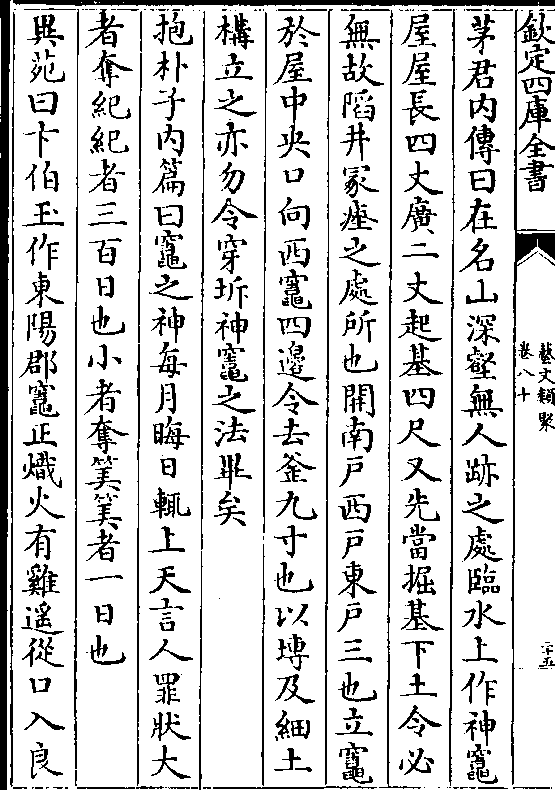 欽定四庫全書
藝文類聚
卷八十
二十五
茅君內傳曰在名山深壑無人跡之處臨水上作神竈
屋屋長四丈廣二丈起基四尺又先當掘基下土令必
無故陷井冢瘞之處所也開南戶西戶東戶三也立竈
於屋中央口向西竈四邊令去釜九寸也以塼及細土
構立之亦勿令穿坼神竈之法畢矣
抱朴子內篇曰竈之神每月晦日輒上天言人罪狀大
者奪紀紀者三百日也小者奪筭筭者一日也
異苑曰卞伯玉作東陽郡竈正熾火有雞遥從口入良